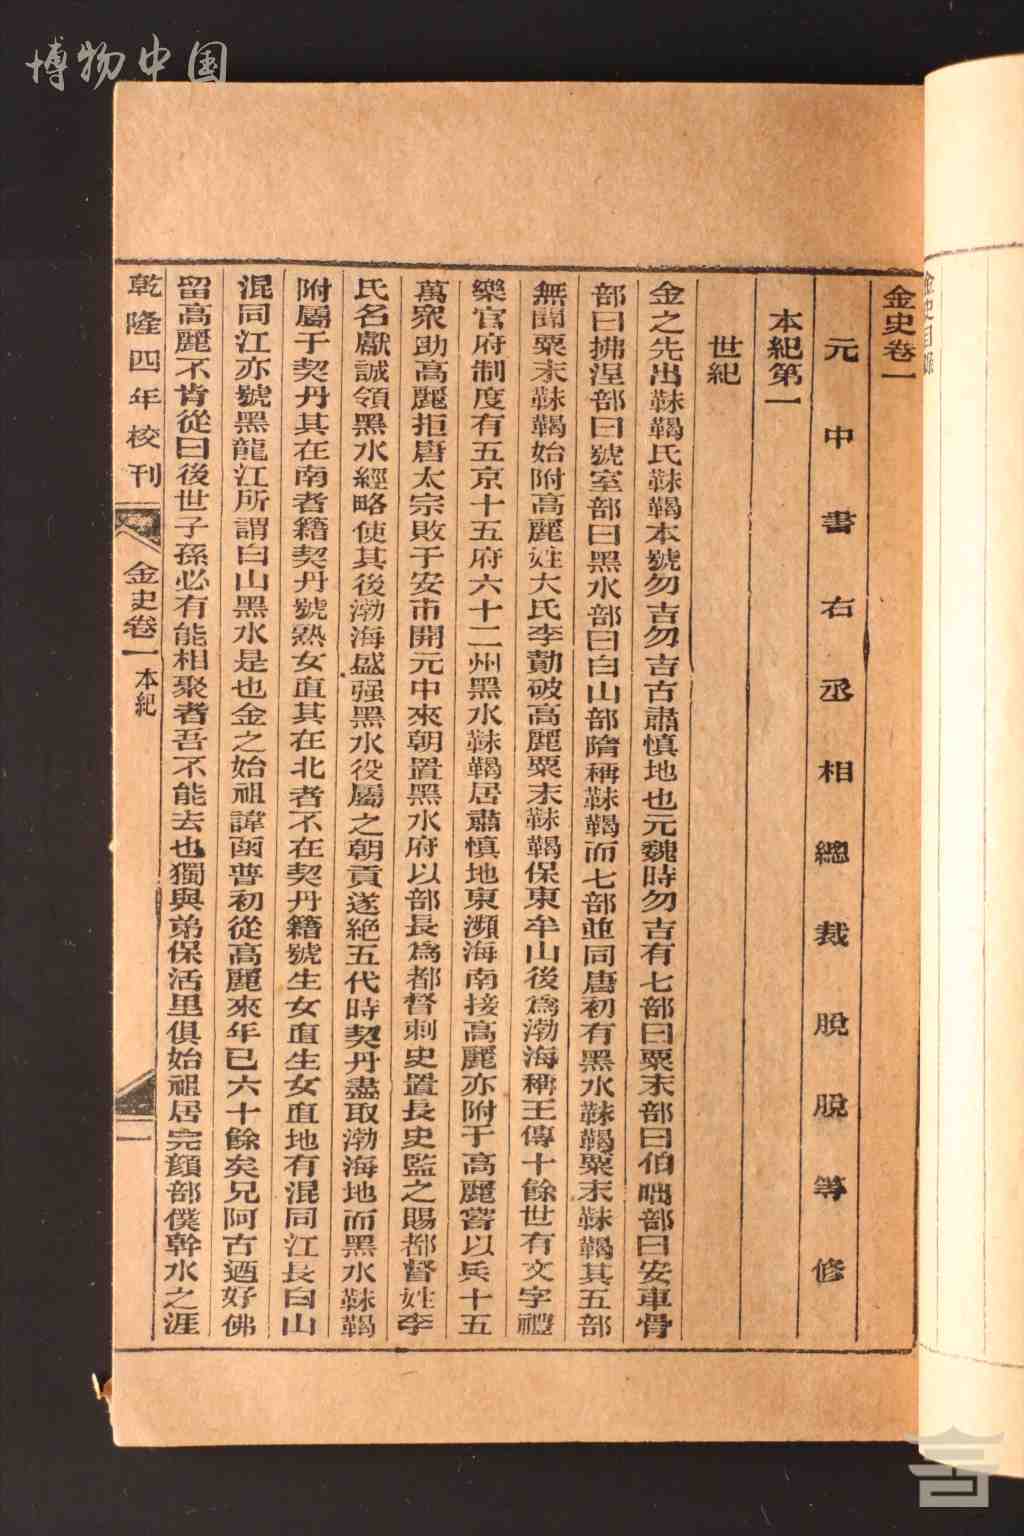 博物中国
金史目錄
金史卷一
元中書右丞相總裁脫脫等修
本紀第一
世紀
金之先出靺鞨氏靺鞨本號勿吉勿吉古肅慎地也元魏時勿吉有七部曰粟末部曰伯咄部曰安車骨
部曰拂涅部曰號室部曰黑水部曰白山部隋稱靺鞨而七部並同唐初有黑水靺鞨粟末靺鞨其五部
無聞粟末靺鞨始附高麗姓大氏李勣破高麗粟末靺鞨保東牟山後為渤海稱王傳十餘世有文字禮
樂官府制度有五京十五府六十二州黑水靺鞨居肅慎地東瀕海南接高麗亦附于高麗嘗以兵十五
萬衆助高麗拒唐太宗敗于安市開元中來朝置黑水府以部長為都督刺史置長史監之賜都督姓李
氏名獻誠領黑水經略使其後渤海盛强黑水役屬之朝貢遂絕五代時契丹盡取渤海地而黑水靺鞨
附屬于契丹其在南者籍契丹號熟女直其在北者不在契丹籍號生女直生女直地有混同江長白山
混同江亦號黑龍江所謂白山黑水是也金之始祖諱函普初從高麗來年已六十餘矣兄阿古迺好佛
留高麗不肯從曰後世子孫必有能相聚者吾不能去也獨與弟保活里俱始祖居完顏部僕幹水之涯
乾隆四年校刊
金史卷一本紀
一